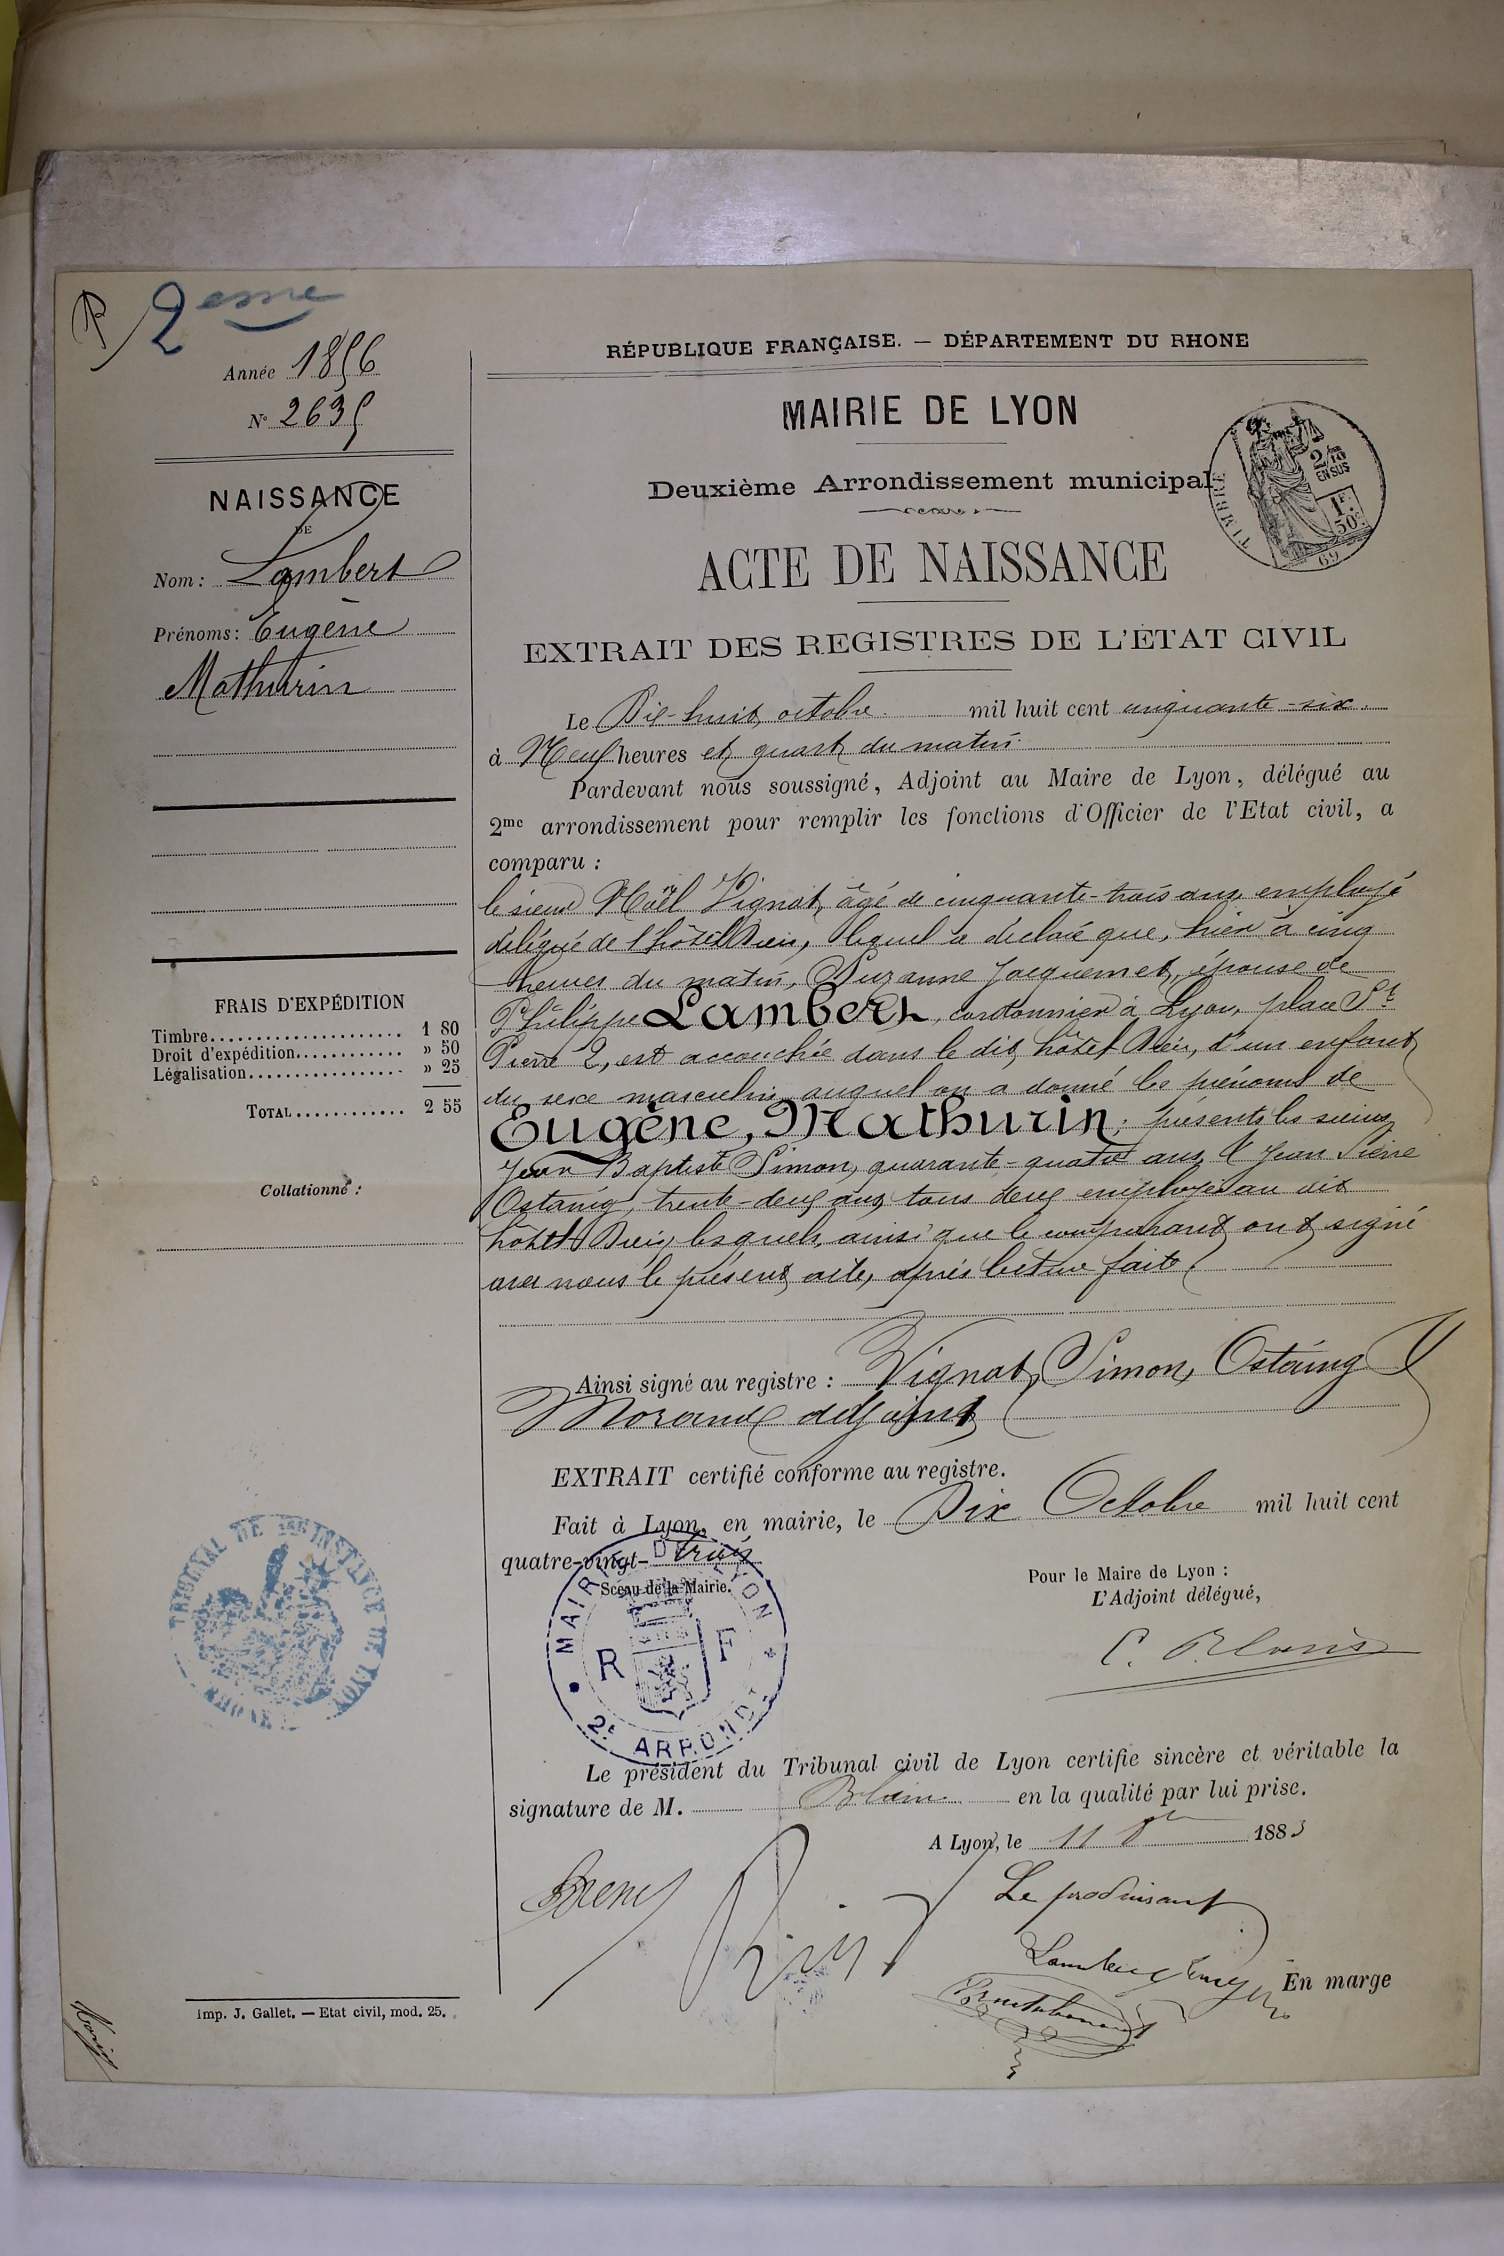 2eme
Année 1856
N° 2635
NAISSANCE
DE
Nom : Lambert
Prénoms : Eugène
Mathurin
FRAIS D'EXPÉDITION
Timbre.................... 1 80
Droit d'expédition............ » 50
Légalisation.................. » 25
TOTAL............ 2 55
Collationné :
TRIBUNAL DE 1ERE INSTANCE DE LYON
RHONE
Imp. J. Gallet. — Etat civil, mod. 25.
RÉPUBLIQUE FRANÇAISE. — DÉPARTEMENT DU RHONE
MAIRIE DE LYON
Deuxième Arrondissement municipal
TIMBRE
2/10
EN SUS
1F.
50c.
69
ACTE DE NAISSANCE
EXTRAIT DES REGISTRES DE L'ÉTAT CIVIL
Le Dix-huit octobre mil huit cent cinquante-six.
à Neuf heures et quart du matin.
Pardevant nous soussigné, Adjoint au Maire de Lyon, délégué au
2me arrondissement pour remplir les fonctions d'Officier de l'Etat civil, a
comparu :
le sieur Noël Vignat, âgé de cinquante-trois ans, employé
délégué de l'hôtel Dieu, lequel a déclaré que, hier à cinq
heures du matin, Suzanne Jacquemet, épouse de
Philippe Lambert, cordonnier à Lyon, place St
Pierre 2, est accouchée dans le dit hôtel Dieu, d'un enfant
du sexe masculin auquel on a donné les prénoms de
Eugène, Mathurin; présents les sieurs
Jean Baptiste Simon, quarante-quatre ans, & Jean Pierre
Ostaing, trente-deux ans, tous deux employés au dit
hôtel Dieu, lesquels, ainsi que le comparant ont signé
avec nous le présent acte, après lecture faite
Ainsi signé au registre : Vignat, Simon, Ostaing &
Morand adjoint
EXTRAIT certifié conforme au registre.
Fait à Lyon, en mairie, le Dix Octobre mil huit cent
quatre-vingt-trois
Sceau de la Mairie.
MAIRIE DE LYON
R F
2E ARRONDT
Pour le Maire de Lyon :
L'Adjoint délégué,
Le président du Tribunal civil de Lyon certifie sincère et véritable la
signature de M. en la qualité par lui prise.
A Lyon, le 11 8bre 1883
Le produisant
Lambert Eugène
En marge